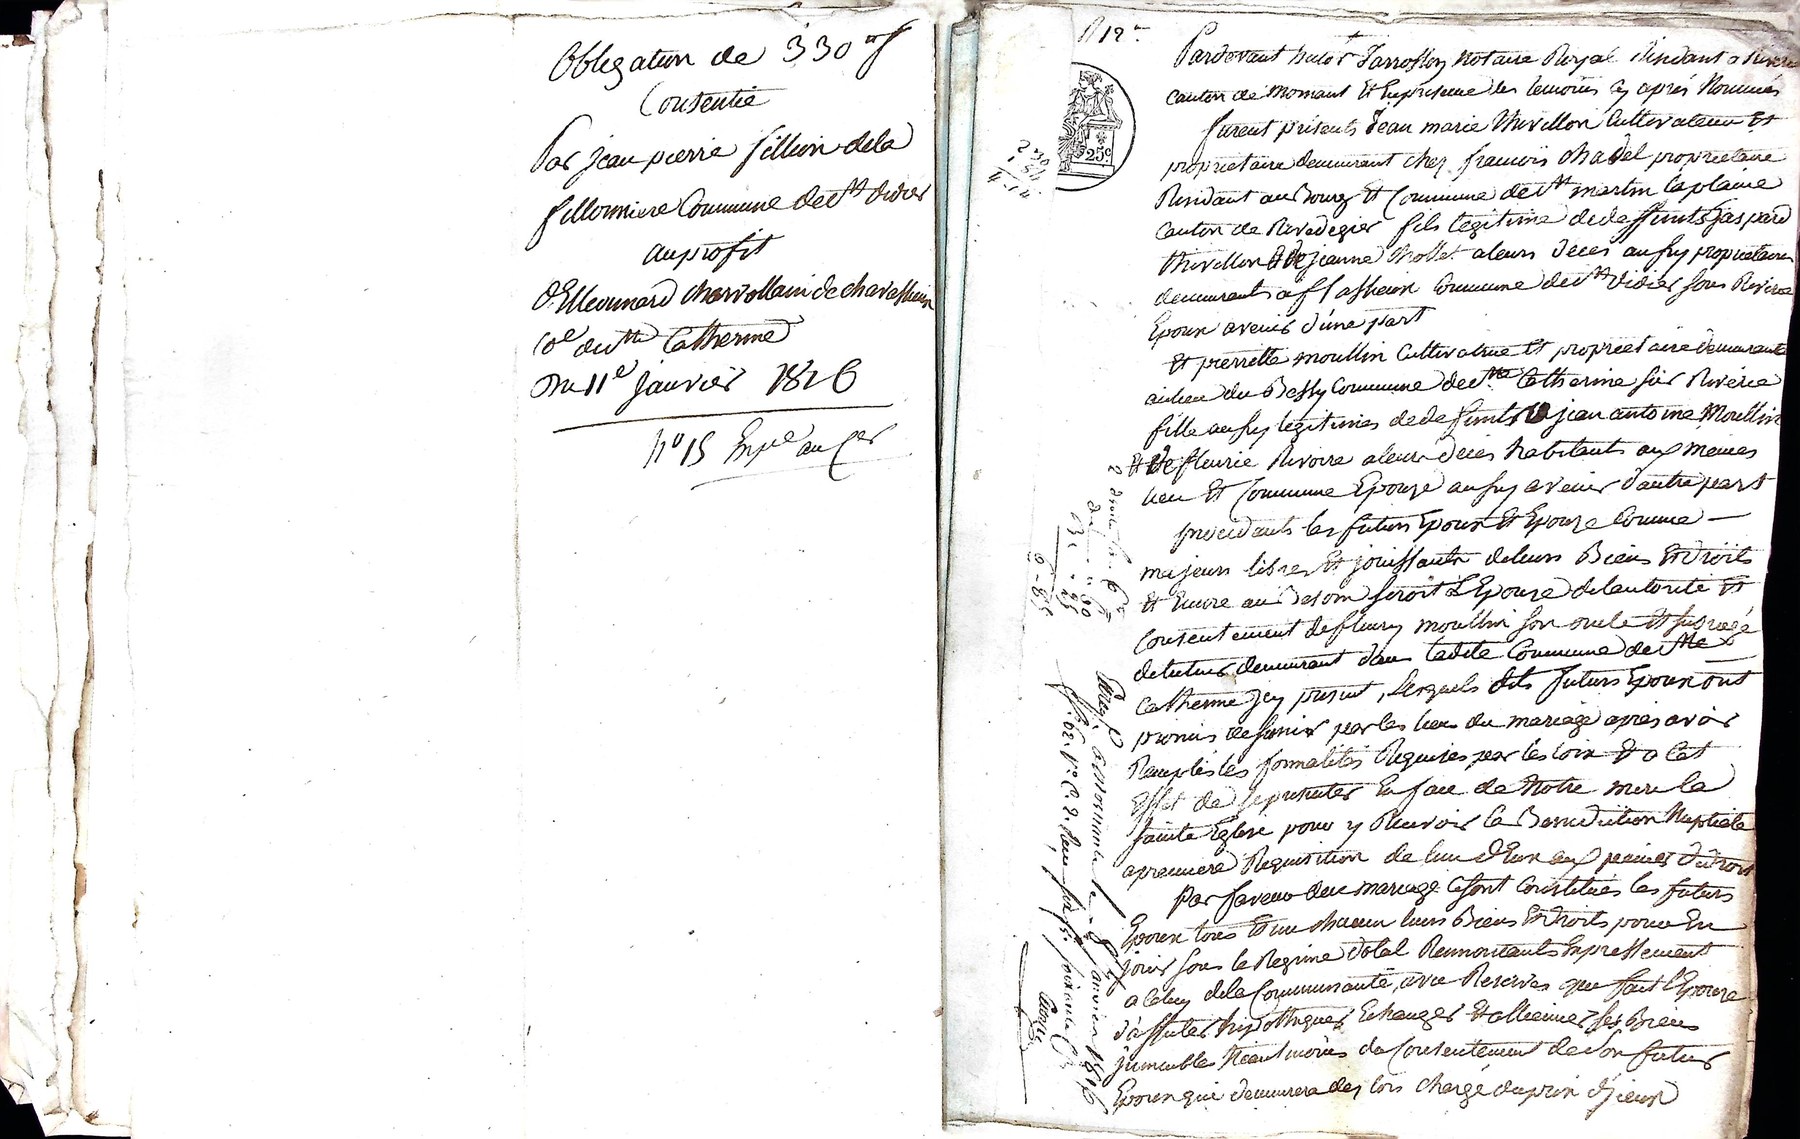 Obligation de 330 f
Consentie
Par jean pierre fillion dela
fillonniere Commune de st didier
au profit
d'Eleonnard chervollain de chavassieux
Cne de ste Catherine
Du 11e janvier 1816
no 15 Enre au
N 12
25c
Pardevant notaire Royal Résidant a Riverie
canton de Mornant Et En presence des temoins cy aprés Nommés
furent présents Jean marie thivillon Cultivateur Et
propriétaire demeurant chez francois propriétaire
Résidant au Bourg Et Commune de st martin laplaine
canton de Rivedegier fils légitime de deffunts Gaspard
thivillon Et de jeanne thollet a leurs décés aussy propriétaires
demeurants a flassieux Commune de st Didier sous Riverie
Epoux avenir d'une part
Et pierrette moullin Cultivatrice Et propriétaire demeurante
au lieu du Bessy Commune de ste Catherine sur Riverie
fille aussy légitime de deffunts jean antoine Moullin
Et de fleurie Rivoire a leurs décés habitants aux mêmes
lieu Et Commune Epouze aussy avenir d'autre part
procédants les futurs Epoux Et Epouze Comme
majeurs libres Et jouissants de leurs Biens Et droits
Et Encore au Besoin seroit L'Epouze de l'autorité Et
Consentement de fleury moullin son oncle Et subrogé
de tuteur demeurant dans ladite Commune de ste
Catherine Icy présent, Lesquels dits futurs Epoux ont
promis de s'unir par les liens du mariage aprés avoir
Remplis les formalités Réquises par les loix Et a Cet
Effet de se présenter En face de Notre mere la
Sainte Eglise pour y Recevoir la Benediction Nuptiale
a premiere Requisition de l'un d'Eux aux peines du droit
Par faveur du mariage se sont Constitués les futurs
Epoux tous Et un chacun leurs Biens Et droits pour En
jouir sous le Régime dotal Renonçants Expressement
a Celuy de la Communauté, avec Reserve que fait l'Epouze
d'affecter hipothequer Echanger Et alliener ses Biens
immeubles Neantmoins du Consentement de Son futur
Epoux qui demeurera des lors chargé du prix d'iceux